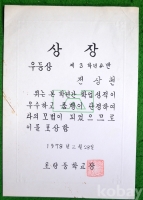 상장
우등상 제 3 학년 4 반
전 상 천
위는 본 학년간 학업성적이
우수하고 품행이 단정하여
타의 모범이 되었으므로
이를 포상함
1978 년 2 월
중학교장
kobay